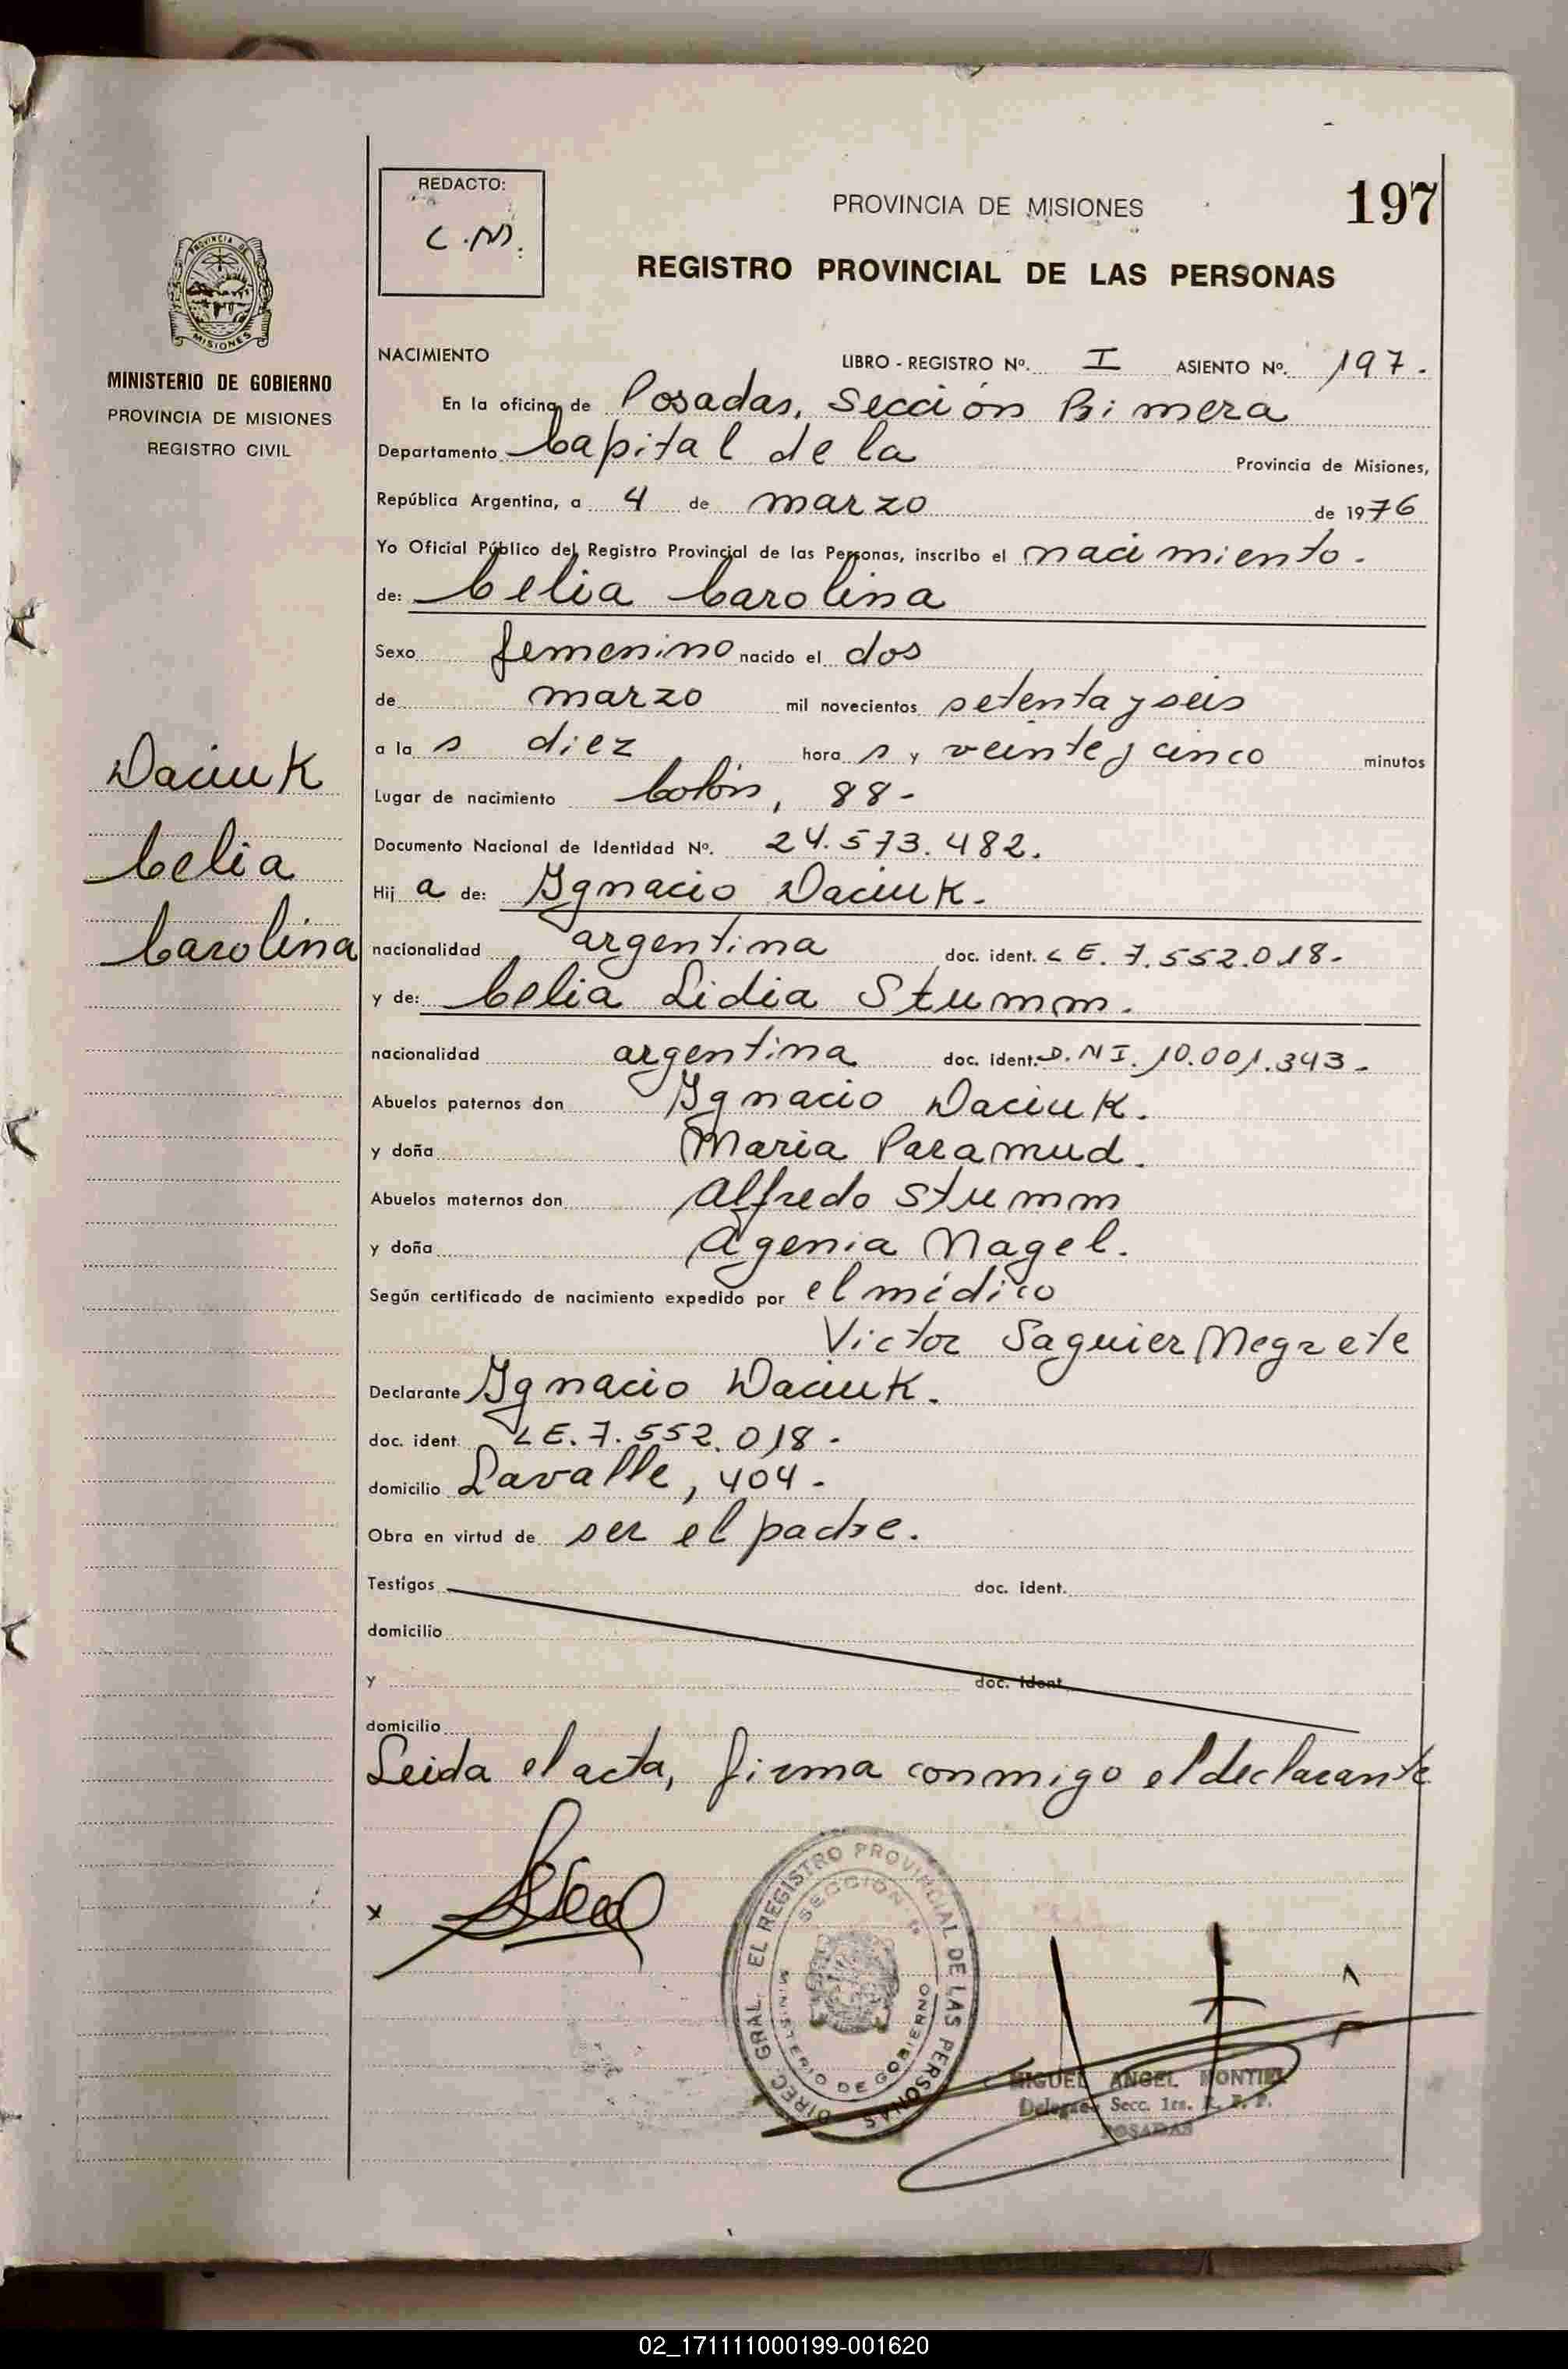 REDACTO:
C.N.
PROVINCIA DE MISIONES
197
REGISTRO PROVINCIAL DE LAS PERSONAS
PROVINCIA DE
MISIONES
MINISTERIO DE GOBIERNO
PROVINCIA DE MISIONES
REGISTRO CIVIL
NACIMIENTO LIBRO - REGISTRO Nº. I ASIENTO Nº. 197.
En la oficina de Posadas, Sección Primera
Departamento Capital de la Provincia de Misiones,
República Argentina, a 4 de marzo de 1976
Yo Oficial Público del Registro Provincial de las Personas, inscribo el nacimiento.
de: Celia Carolina
Sexo femenino nacido el dos
de marzo mil novecientos setenta y seis
a la s diez hora s y veinte y cinco minutos
Lugar de nacimiento Colón, 88-
Documento Nacional de Identidad Nº. 24.573.482.
Hij a de: Ygnacio Daciuk.
nacionalidad argentina doc. ident. LE. 7.552.018-
y de: Celia Lidia Stumm.
nacionalidad argentina doc. ident. D.NI. 10.001.343-
Abuelos paternos don Ygnacio Daciuk.
y doña Maria Paramud.
Abuelos maternos don Alfredo Stumm
y doña Agenia Nagel.
Según certificado de nacimiento expedido por el médico
Victor Saguier Negrete
Declarante Ygnacio Daciuk.
doc. ident. LE. 7.552.018-
domicilio Lavalle, 404-
Obra en virtud de ser el padre.
Testigos doc. ident.
domicilio
y doc. ident.
domicilio
Leida el acta, firma conmigo el declarante
Daciuk
Celia
Carolina
x
DIREC. GRAL. EL REGISTRO PROVINCIAL DE LAS PERSONAS
SECCION
MINISTERIO DE GOBIERNO
MIGUEL ANGEL MONTIEL
Delegado Secc. 1ra. R. P. P.
POSADAS
02_171111000199-001620